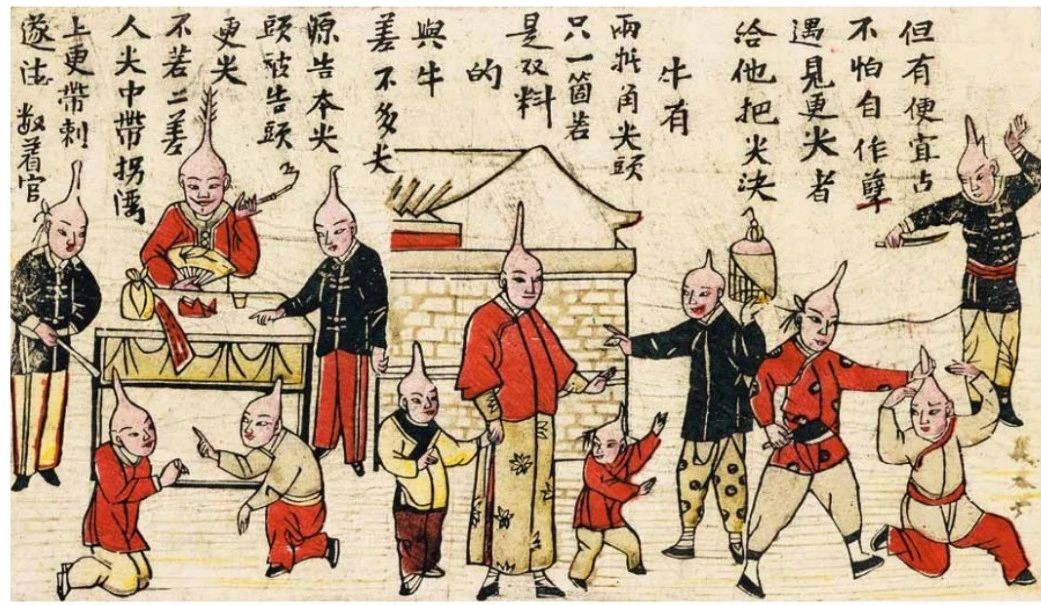 但有便宜占
不怕自作孽
遇見更尖者
給他把尖決
牛有
兩抵角尖頭
只一箇若
是双料
的
與牛
差不多尖
源告本尖
頭被告頭
更尖
不若二差
人尖中帶拐灣
上更帶刺
遂法 数着官